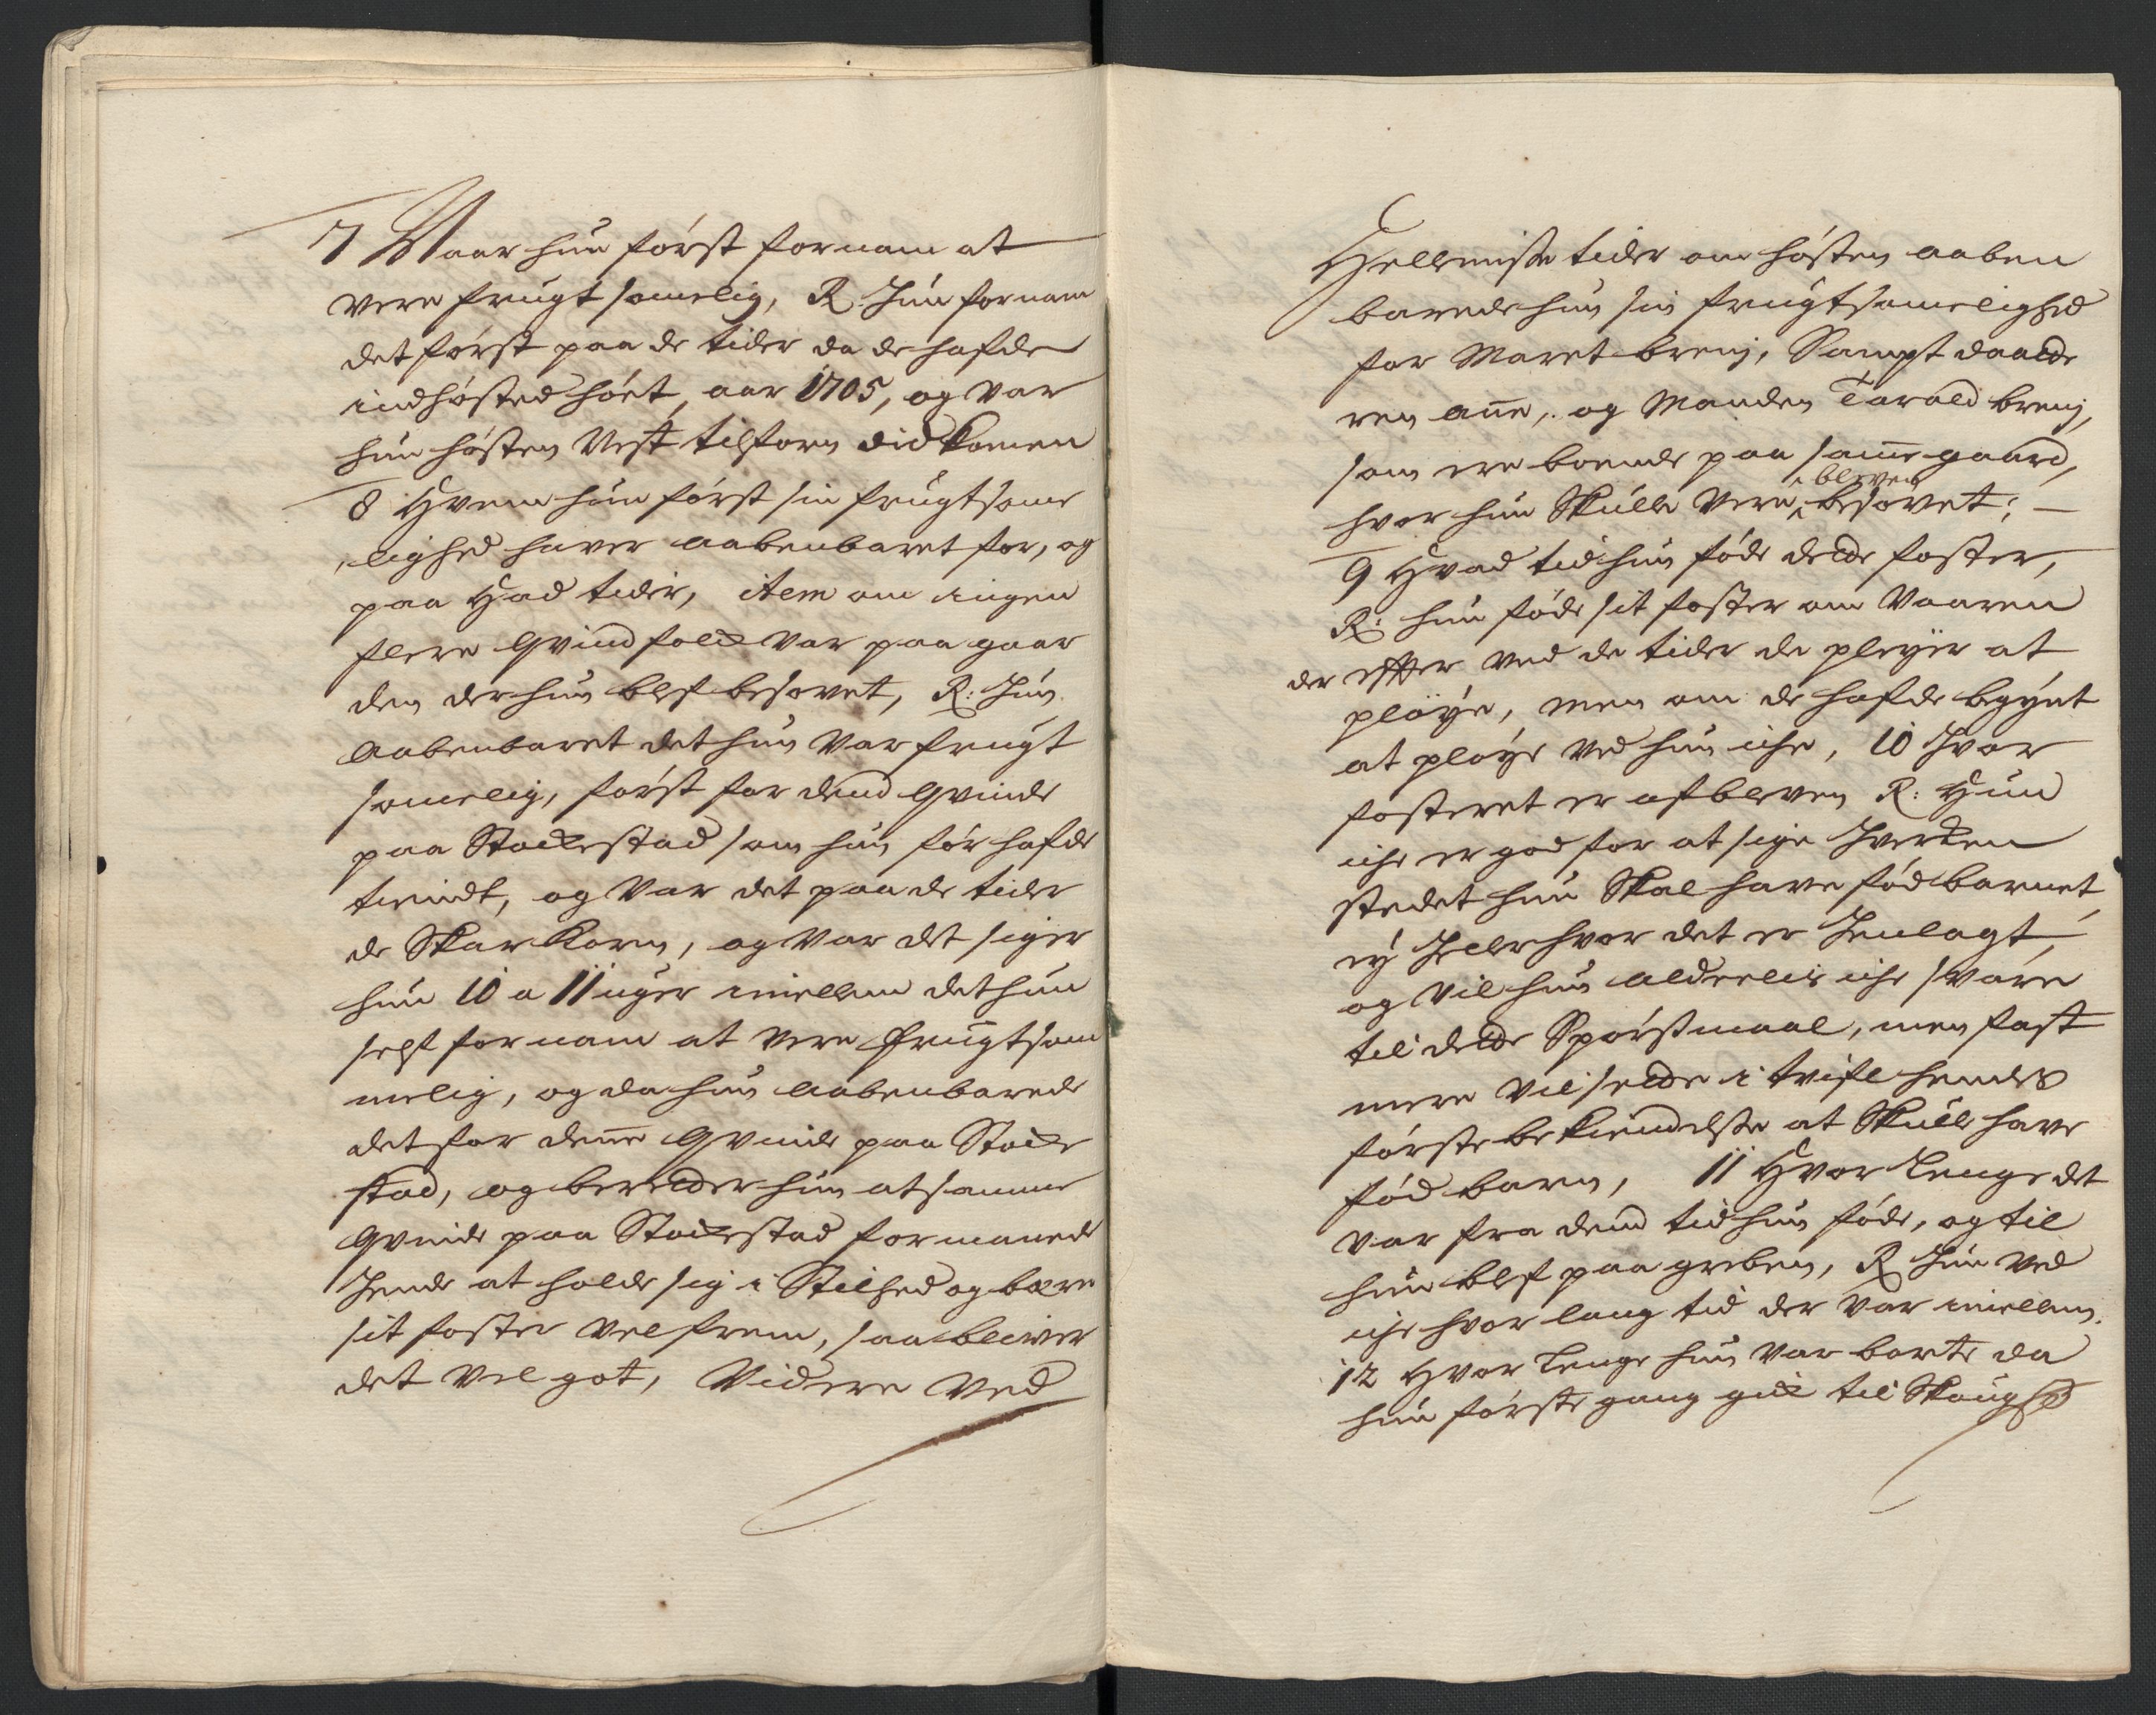 7 Naar hun først fornam at
vere frugtsomelig, R. Hun fornam
det først paa de tider da de hafde
indhøsted høet, aar 1705, og var
hun høsten nest tilforn did komen
8 Hvem hun først sin frugtsome
lighed haver aabenbaret for, og
paa Had tider, item om ingen
flere Qvindfolck var paa gaar
den der hun blef besovet, R: Hun
aabenbaret det hun var frugt
somelig, først for dend Qvinde
paa Stockestad som hun før hafde
tient, og var det paa de tider
de Skar Korn, og var det siger
hun 10 a 11 uger imellem det hun
self fornam at vere frugtsom
melig, og da hun aabenbarede
det for denne Qvinde paa Stocke
stad, og beretter hun at samme
Qvinde paa Stockestad formanede
Hende at holde sig i Stilhed og bære
sit foster vel frem, saa bliver
det vel got, Videre ved
Hellemisse tider om høsten aaben
barede hun sin frugtsomelighed
for Maret brenj, Sampt daatte
ren anne, og Manden Tarald brenj,
som ere boende paa samme gaard,
hvor hun Skulle vere bleven besovet; —
9 Hvad tid hun føde dette foster,
R: hun føde sit foster om Vaaren
der effter ved de tider de pleyer at
pløye, men om de hafde begynt
at pløye ved hun iche, 10 Hvor
fosteret er afbleven R: Hun
iche er god for at sige Hverken
stedet hun Skal have fød barnet,
ey Heller hvor det er Henlagt,
og vil hun alderelis iche svare
til dette Spørsmaal, men fast
mere vil sette i tvifl hendes
første bekiendelse at Skulle have
fød barn, 11 Hvor Lenge det
var fra dend tid hun føde, og til
hun blef paagreben, R Hun ved
iche hvor lang tid der var imellem.
12 Hvor Lenge hun var borte da
hun første gang gick til Skougs